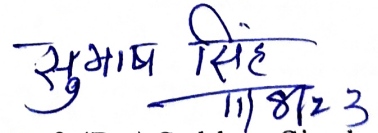 सुभाष सिंह
11/8/23